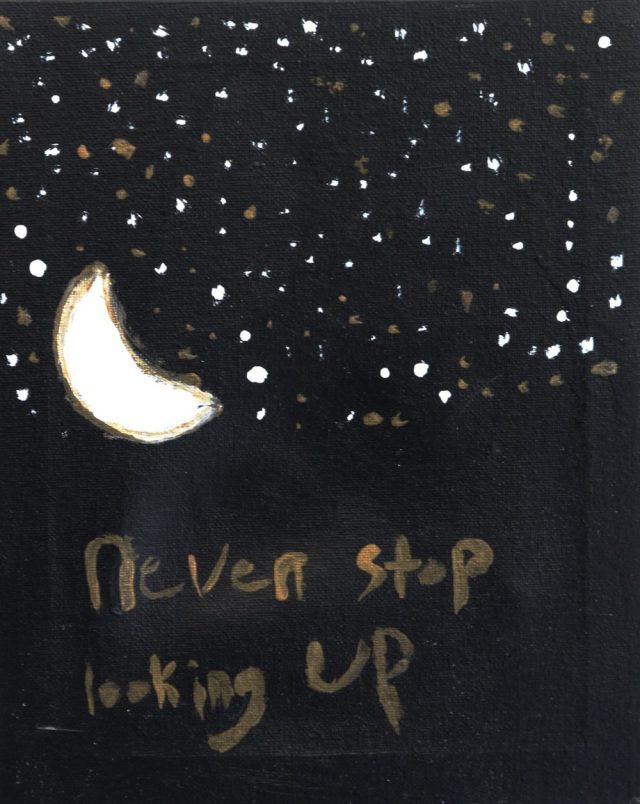 never stop
looking UP